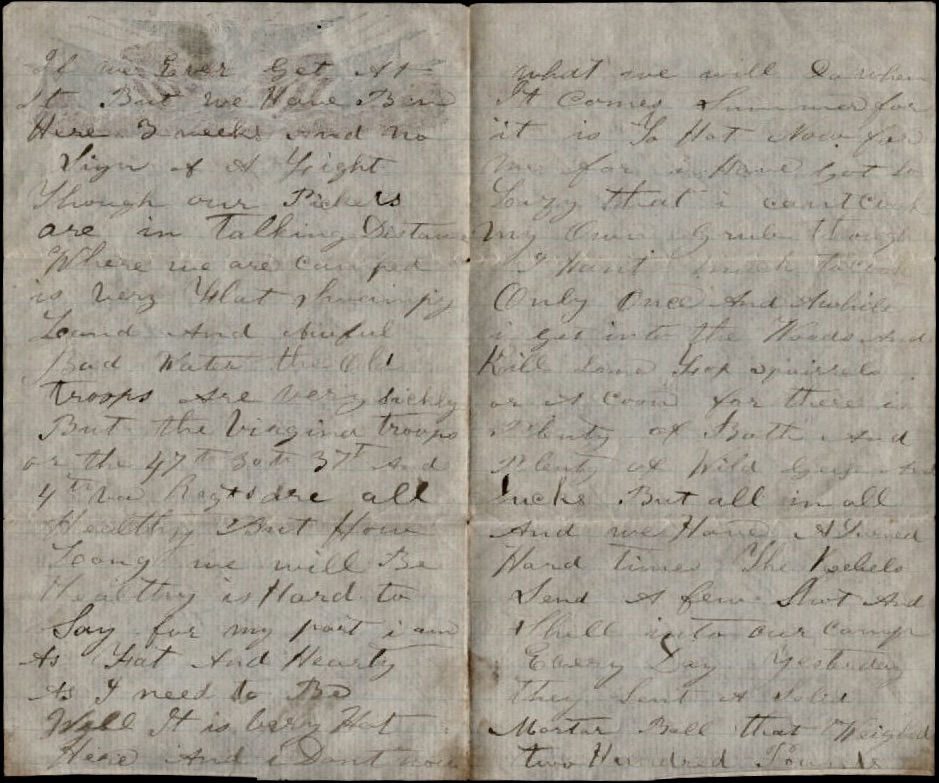 If we Ever Get At
It But we Have Bin
Here 3 weeks And no
Sign of A Fight
Though our Pickets
are in talking Distance
Where we are camped
is very Flat Swampy
Land And Awful
Bad Water the Old
troops are very Sickly
But the Virgina troops
or the 47th 30th 37th And
4th Regts are all
Healthy But How
Long we will Be
Healthy is Hard to
Say for my part i am
As Fat And Hearty
As I need to Be
Well It is very Hot
Here And i Dont now
what we will Do when
It Comes Summer for
it is So Hot Now for
me for i Have Got So
Lazy that i cant Cook
My Own Grub though
I Hant much to
Only Once And Awhile
i get into the Woods And
Kill Some Fox Squirrels
or A Coon for there is
Plenty of Both And
Plenty of Wild And
Ducks But all in all
And we Have A
Hard time The Rebels
Send A few Shot And
Shell into our camp
Every Day Yesterday
they Sent A Solid
Mortar Ball that Weighed
two Hundred Pounds